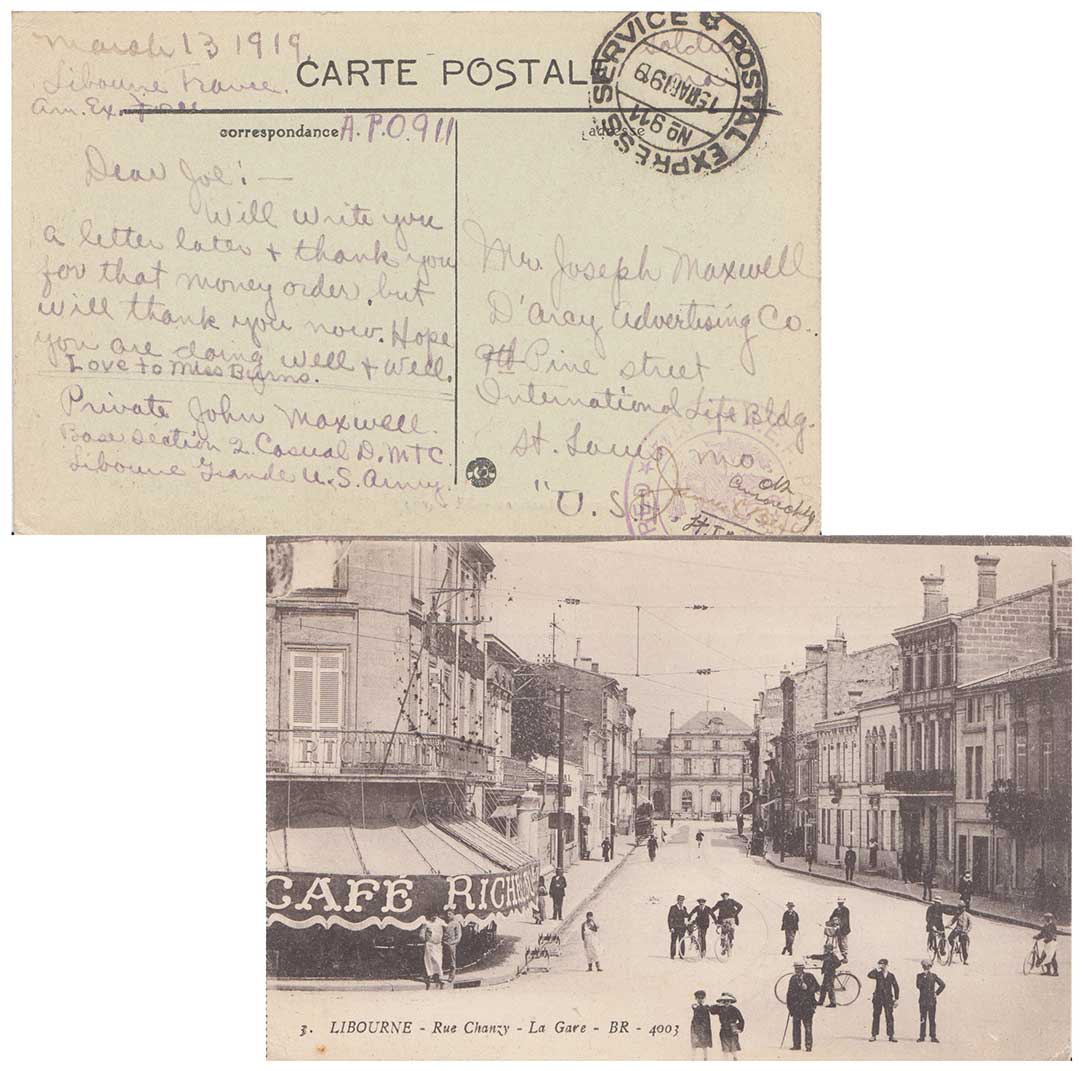 March 13 1919.
Libourne France.
Am. Ex. Force
CARTE POSTALE
Soldier
POSTAL EXPRESS SERVICE
15 MAR 1919
No 911
correspondance
A.P.O. 911
adresse
Dear Joe:—
Will write you
a letter later + thank you
for that money order, but
will thank you now. Hope
you are doing well + well.
Love to Miss Byrns.
Private John Maxwell.
Base Section 2 Casual D. MTC
Libourne Grande U.S. Army
Mr. Joseph Maxwell
D'arcy Advertising Co.
9th Pine street
International Life Bldg.
St. Louis Mo
"U.S.A
OK
RICHELIEU
CAFÉ RICHE
3. LIBOURNE - Rue Chanzy - La Gare - BR - 4003